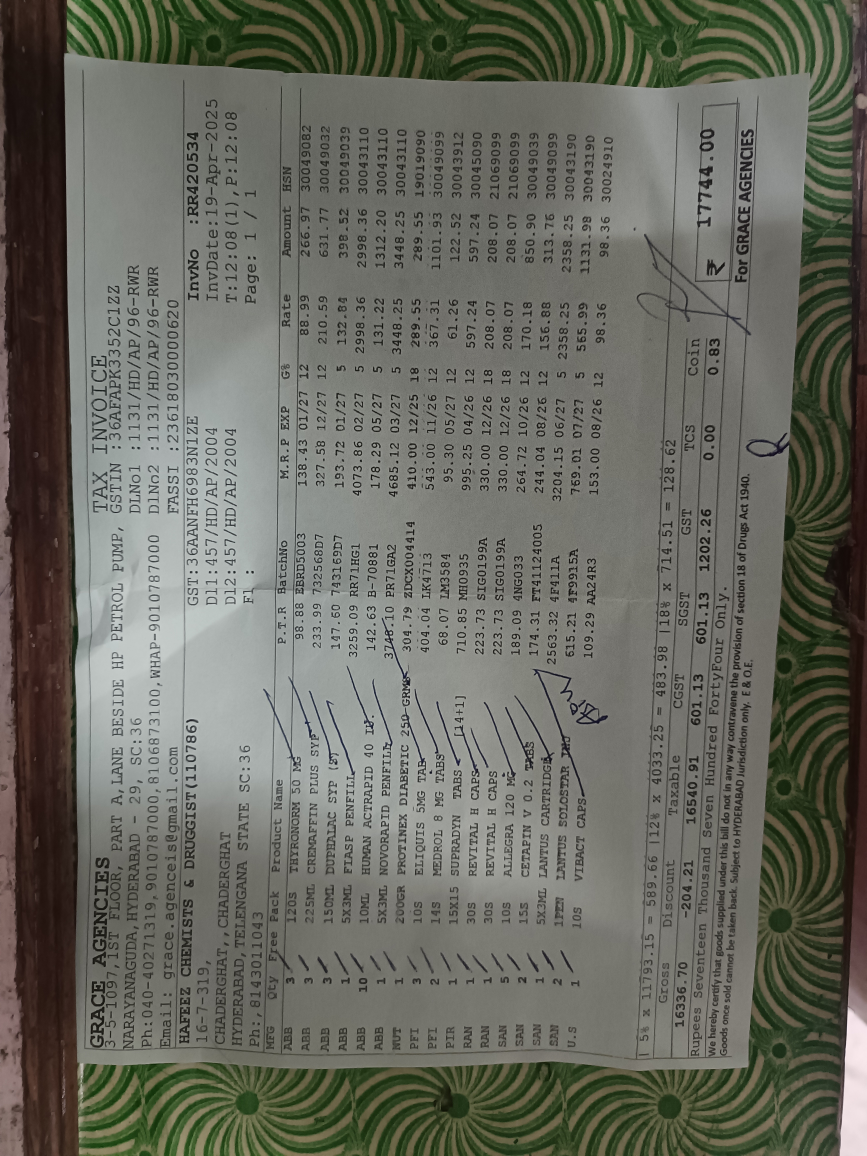 GRACE AGENCIES TAX INVOICE
3-5-1097,1ST FLOOR, PART A,LANE BESIDE HP PETROL PUMP, GSTIN :36AFAPK3352C1ZZ
NARAYANAGUDA,HYDERABAD - 29, SC:36 DLNo1 :1131/HD/AP/96-RWR
Ph:040-40271319,9010787000,8106873100,WHAP-9010787000 DlNo2 :1131/HD/AP/96-RWR
Email: grace.agenceis@gmail.com FASSI :23618030000620
HAFEEZ CHEMISTS & DRUGGIST(110786) GST:36AANFH6983N1ZE InvNo :RR420534
16-7-319, Dl1:457/HD/AP/2004 InvDate:19-Apr-2025
CHADERGHAT,,CHADERGHAT Dl2:457/HD/AP/2004 T:12:08(1),P:12:08
HYDERABAD,TELENGANA STATE SC:36 Fl : Page: 1 / 1
Ph:,8143011043
MFG Qty Free Pack Product Name P.T.R BatchNo M.R.P EXP G% Rate Amount HSN
ABB 3 120S THYRONORM 50 MG 98.88 EBRD5003 138.43 01/27 12 88.99 266.97 30049082
ABB 3 225ML CREMAFFIN PLUS SYP 233.99 732568D7 327.58 12/27 12 210.59 631.77 30049032
ABB 3 150ML DUPHALAC SYP 147.60 743169D7 193.72 01/27 5 132.84 398.52 30049039
ABB 1 5X3ML FIASP PENFILL 3259.09 RR71HG1 4073.86 02/27 5 2998.36 2998.36 30043110
ABB 10 10ML HUMAN ACTRAPID 40 IU. 142.63 B-70881 178.29 05/27 5 131.22 1312.20 30043110
ABB 1 5X3ML NOVORAPID PENFILL 3748.10 PR71GA2 4685.12 03/27 5 3448.25 3448.25 30043110
NUT 1 200GR PROTINEX DIABETIC 250 GRMS 304.79 ZDCX004414 410.00 12/25 18 289.55 289.55 19019090
PFI 3 10S ELIQUIS 5MG TAB 404.04 LK4713 543.00 11/26 12 367.31 1101.93 30049099
PFI 2 14S MEDROL 8 MG TABS 68.07 LM3584 95.30 05/27 12 61.26 122.52 30043912
PIR 1 15X15 SUPRADYN TABS [14+1] 710.85 MH0935 995.25 04/26 12 597.24 597.24 30045090
RAN 1 30S REVITAL H CAPS 223.73 SIG0199A 330.00 12/26 18 208.07 208.07 21069099
RAN 1 30S REVITAL H CAPS 223.73 SIG0199A 330.00 12/26 18 208.07 208.07 21069099
SAN 5 10S ALLEGRA 120 MG 189.09 4NG033 264.72 10/26 12 170.18 850.90 30049039
SAN 2 15S CETAPIN V 0.2 TABS 174.31 FT41124005 244.04 08/26 12 156.88 313.76 30049099
SAN 1 5X3ML LANTUS CARTRIDGE 2563.32 4F411A 3204.15 06/27 5 2358.25 2358.25 30043190
SAN 2 1PEN LANTUS SOLOSTAR 615.21 4F9915A 769.01 07/27 5 565.99 1131.98 30043190
U.S 1 10S VIBACT CAPS 109.29 AA24R3 153.00 08/26 12 98.36 98.36 30024910
| 5% x 11793.15 = 589.66 |12% x 4033.25 = 483.98 |18% x 714.51 = 128.62
Gross Discount Taxable CGST SGST GST TCS Coin
16336.70 -204.21 16540.91 601.13 601.13 1202.26 0.00 0.83 ₹ 17744.00
Rupees Seventeen Thousand Seven Hundred FortyFour Only.
We hereby certify that goods supplied under this bill do not in any way contravene the provision of section 18 of Drugs Act 1940.
Goods once sold cannot be taken back. Subject to HYDERABAD Jurisdiction only. E & O.E. For GRACE AGENCIES